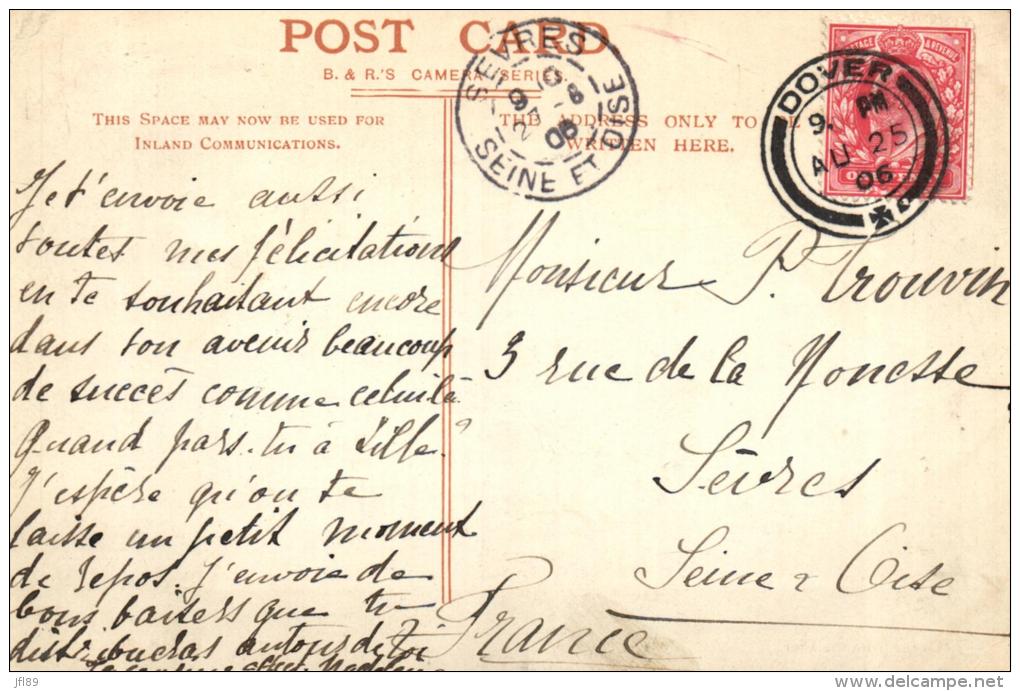 POST CARD
B. & R.'S CAMERA SERIES.
THIS SPACE MAY NOW BE USED FOR
INLAND COMMUNICATIONS.
THE ADDRESS ONLY TO BE
WRITTEN HERE.
SEVRES
SEINE ET OISE
06
DOVER
9. PM
AU 25
06
POSTAGE & REVENUE
Je t'envoie aussi
toutes mes félicitations
en te souhaitant encore
dans ton avenir beaucoup
de succès comme celui là
Quand pars-tu à Lille?
J'espère qu'on te
laisse un petit moment
de repos. J'envoie de
bons baisers que tu
distribueras autour de toi
Monsieur P. Trouvin
3 rue de la Monesse
Sèvres
Seine & Oise
France
jfl89
delcampe.net